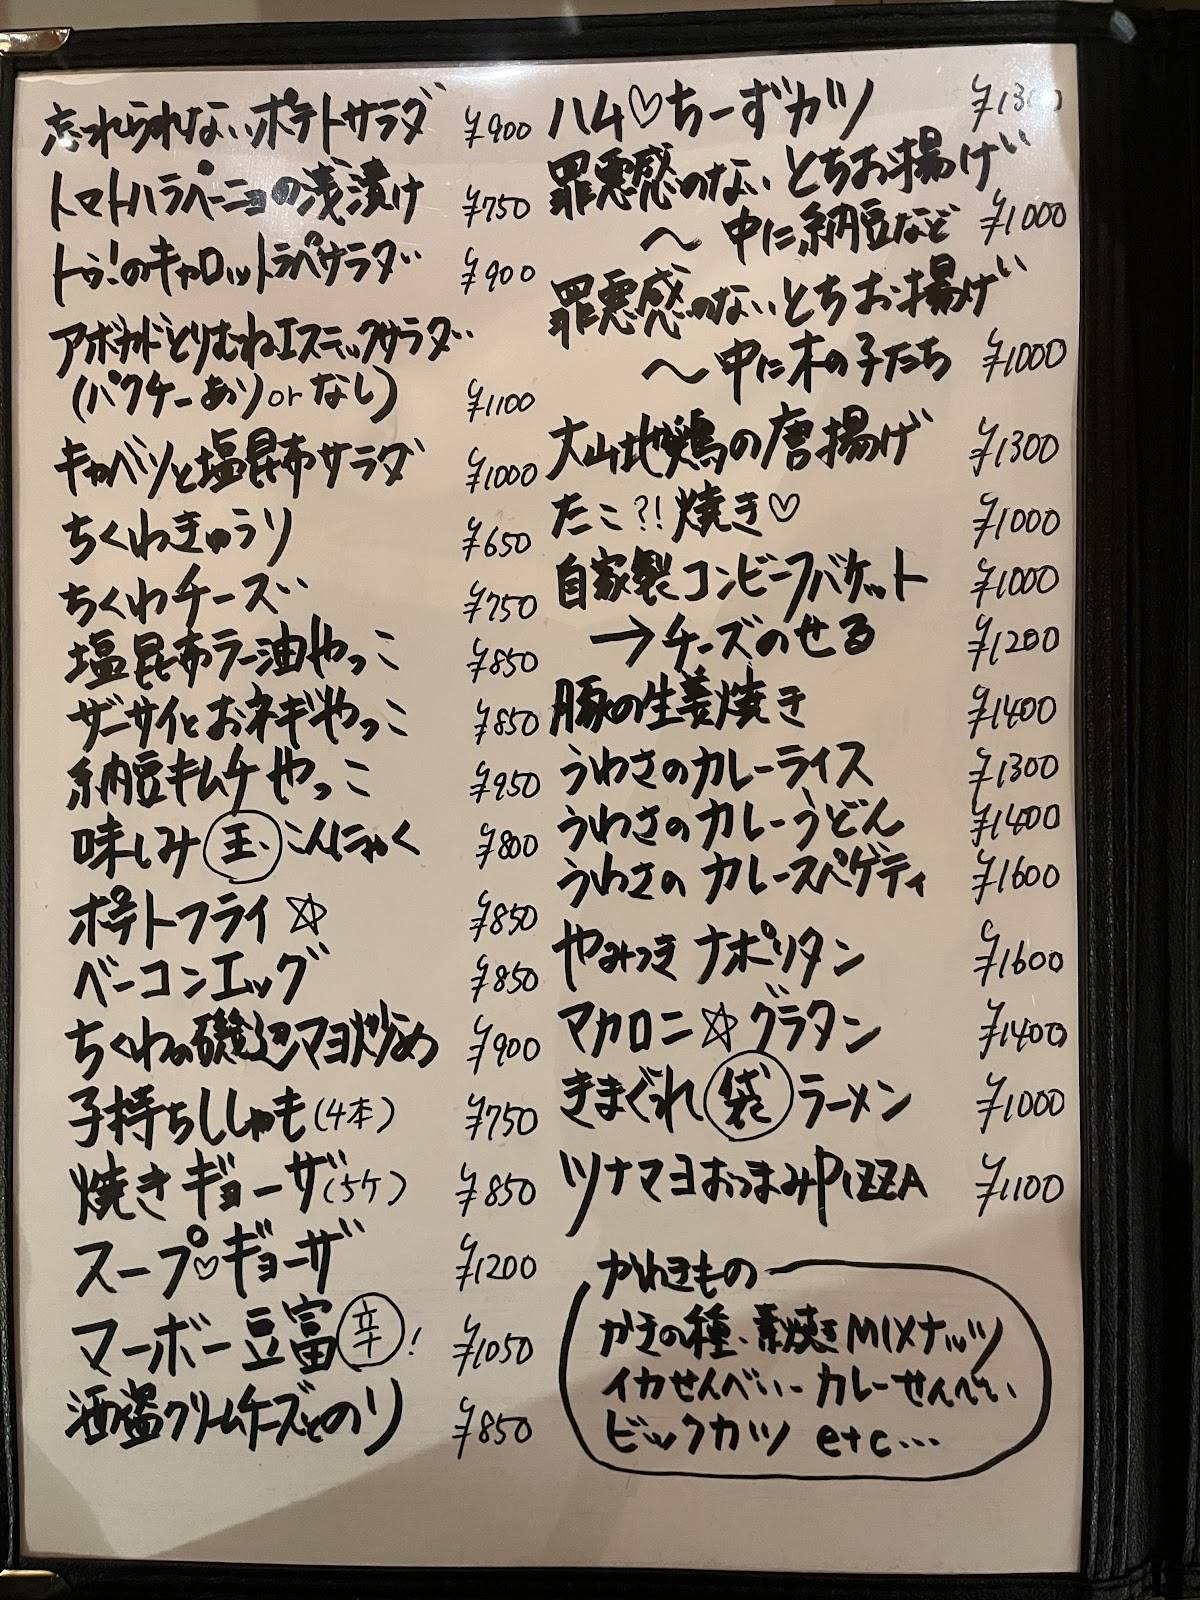 忘れられないポテトサラダ ¥900
トマトハラペーニョの浅漬け ¥750
トゥ!のキャロットラペサラダ ¥900
アボカドとりむねエスニックサラダ
(パクチーありorなし) ¥1100
キャベツと塩昆布サラダ ¥1000
ちくわきゅうり ¥650
ちくわチーズ ¥750
塩昆布ラー油やっこ ¥850
ザーサイとおネギやっこ ¥850
納豆キムチやっこ ¥950
味しみ玉こんにゃく ¥800
ポテトフライ☆ ¥850
ベーコンエッグ ¥850
ちくわの磯辺マヨ炒め ¥900
子持ちししゃも(4本) ¥750
焼きギョーザ(5ケ) ¥850
スープ♡ギョーザ ¥1200
マーボー豆富辛! ¥1050
酒盗クリームチーズとのり ¥850
ハム♡ちーずカツ ¥1300
罪悪感のないとちお揚げ
〜中に納豆など ¥1000
罪悪感のないとちお揚げ
〜中に木の子たち ¥1000
大山地鶏の唐揚げ ¥1300
たこ?!焼き♡ ¥1000
自家製コンビーフバケット ¥1000
→チーズのせる ¥1200
豚の生姜焼き ¥1400
うわさのカレーライス ¥1300
うわさのカレーうどん ¥1400
うわさのカレースパゲティ ¥1600
やみつきナポリタン ¥1600
マカロニ☆グラタン ¥1400
きまぐれ袋ラーメン ¥1000
ツナマヨおつまみPIZZA ¥1100
かわきもの
かきの種、素焼きMIXナッツ
イカせんべい カレーせんべい
ビックカツ etc…